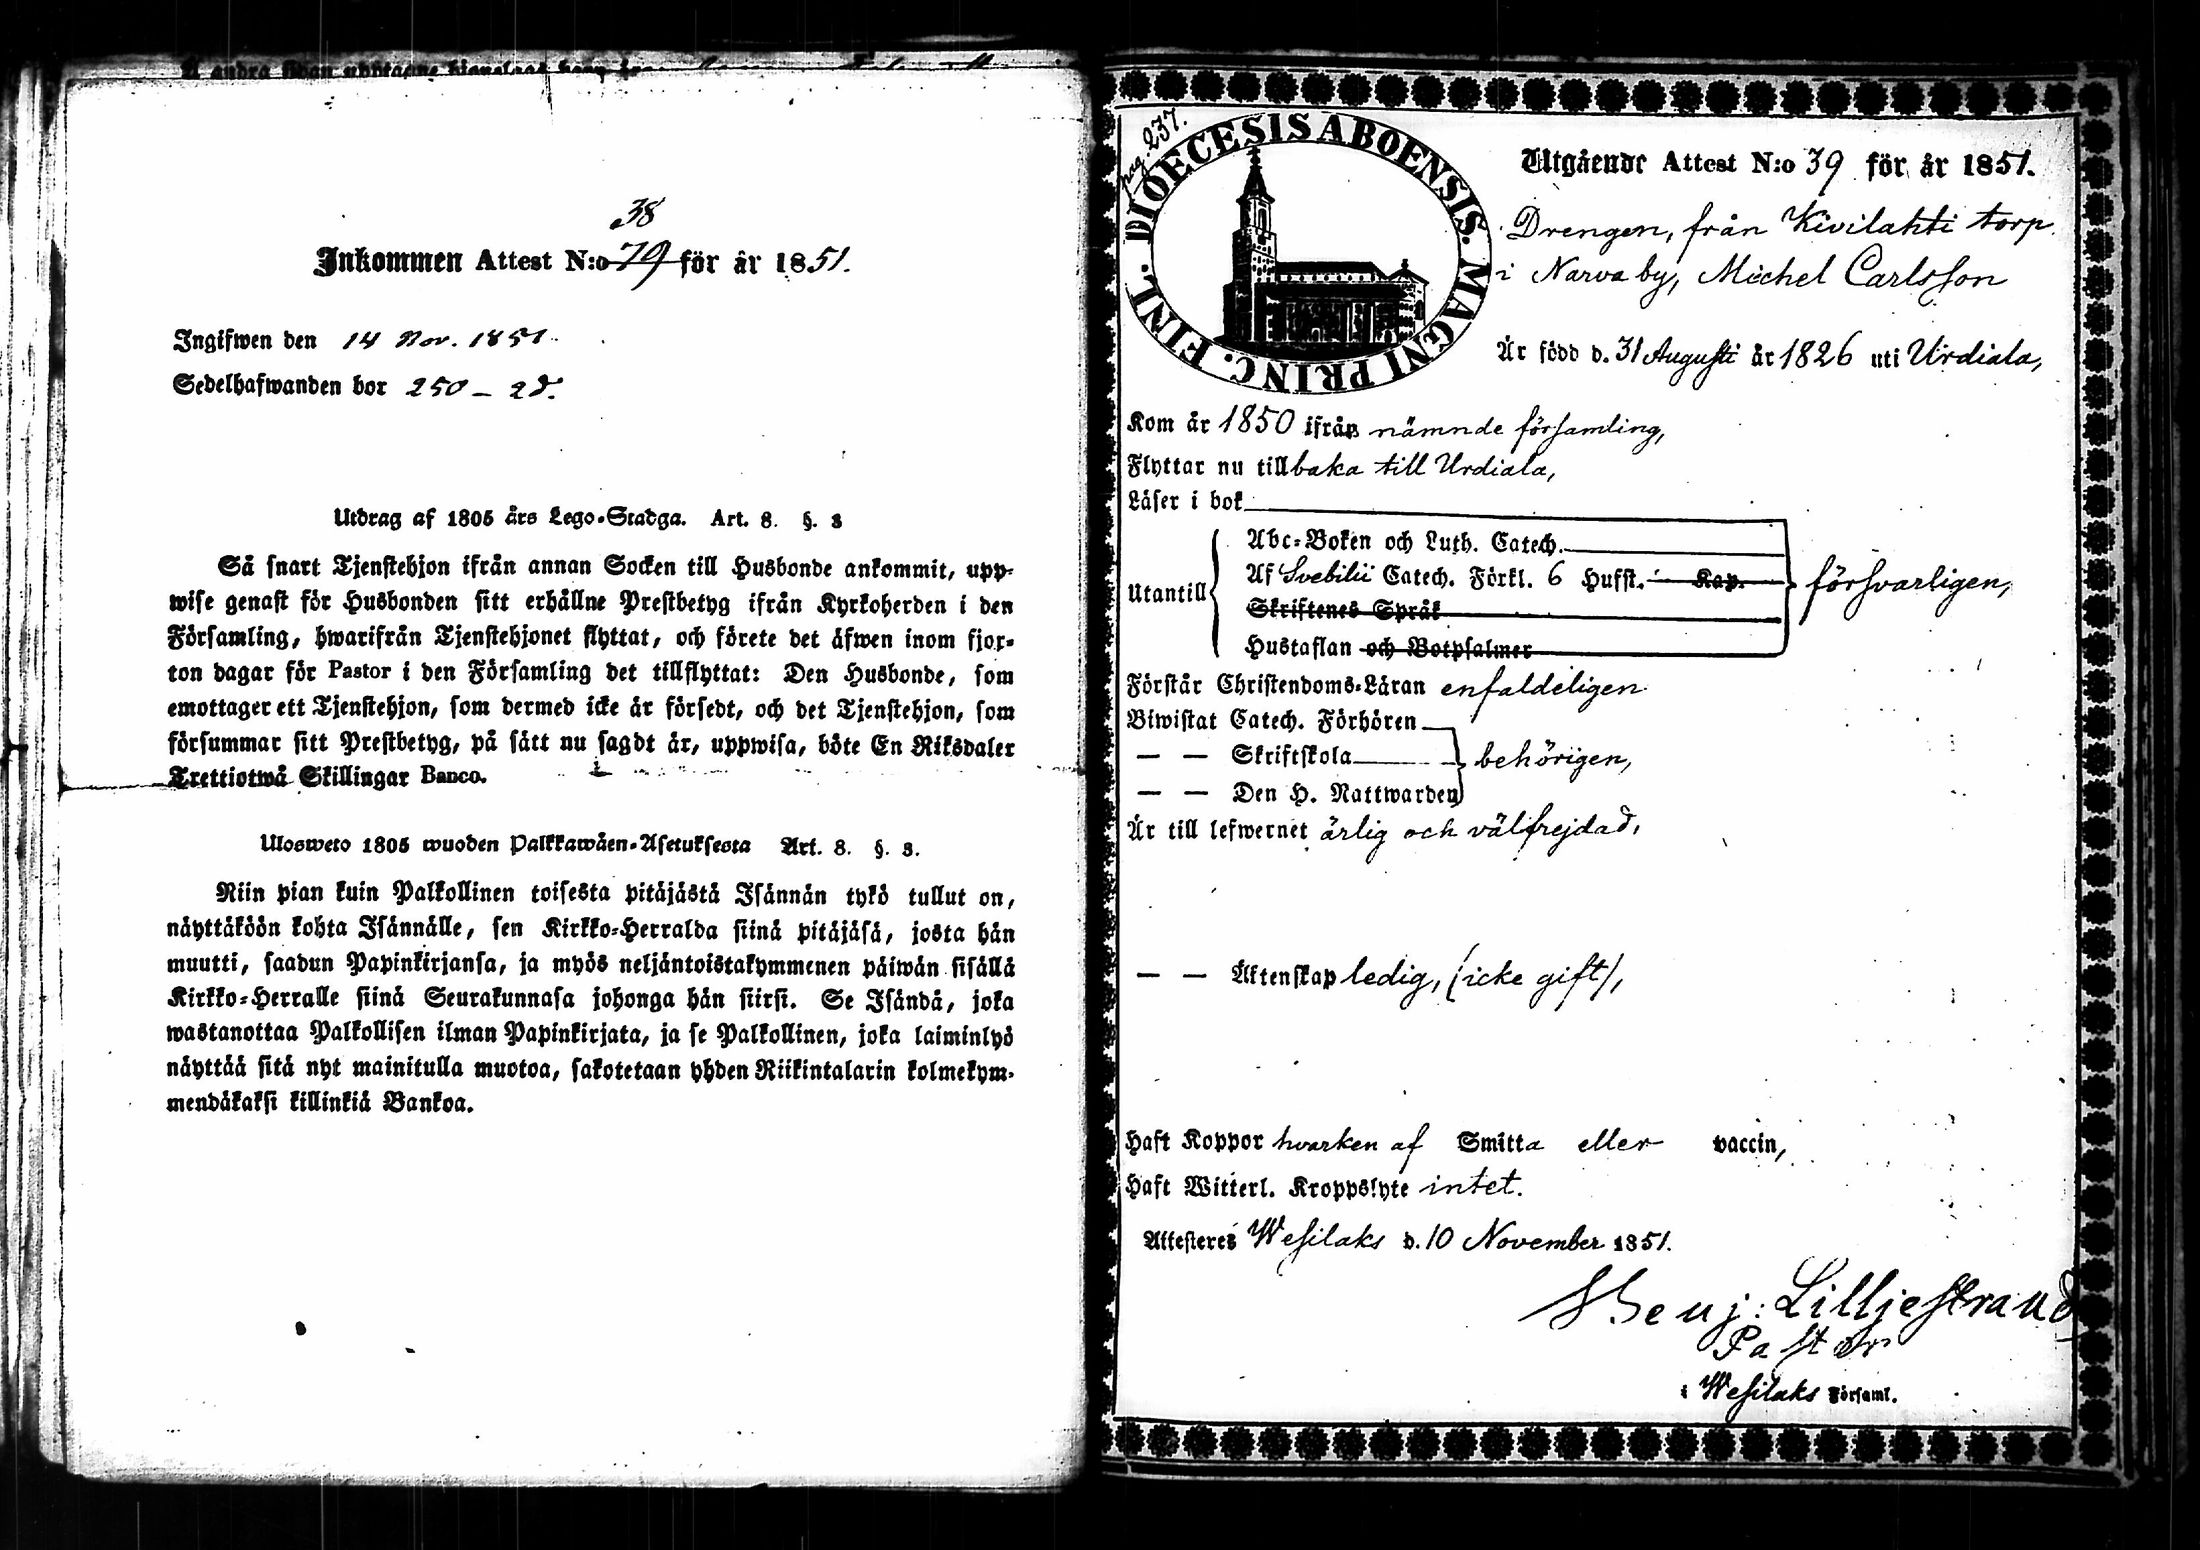 38
Inkommen Attest N:o 79 för år 1851.
Ingifwen den 14 Nov. 1851.
Sedelhafwanden bor 250 – 28.
Utdrag af 1805 års Lego-Stadga. Art. 8. §. 3
Så snart Tjenstehjon ifrån annan Socken till Husbonde ankommit, upp-
wise genast för Husbonden sitt erhållne Prestbetyg ifrån Kyrkoherden i den
Församling, hwarifrån Tjenstehjonet flyttat, och förete det äfwen inom fjor-
ton dagar för Pastor i den Församling det tillflyttat: Den Husbonde, som
emottager ett Tjenstehjon, som dermed icke är försedt, och det Tjenstehjon, som
försummar sitt Prestbetyg, på sätt nu sagdt är, uppwisa, böte En Riksdaler
Trettiotwå Skillingar Banco.
Ulosweto 1805 wuoden Palkkawäen-Asetuksesta Art. 8. §. 3.
Niin pian kuin Palkollinen toisesta pitäjästä Isännän tykö tullut on,
näyttäköön kohta Isännälle, sen Kirkko-Herralda siinä pitäjäsä, josta hän
muutti, saadun Papinkirjansa, ja myös neljäntoistakymmenen päiwän sisällä
Kirkko-Herralle siinä Seurakunnasa johonga hän siirsi. Se Isändä, joka
wastanottaa Palkollisen ilman Papinkirjata, ja se Palkollinen, joka laiminlyö
näyttää sitä nyt mainitulla muotoa, sakotetaan yhden Riikintalarin kolmekym-
mendäkaksi killinkiä Bankoa.
pag. 237.
DIOECESIS ABOENSIS. MAGNI PRINC. FINL.
Utgående Attest N:o 39 för år 1851.
Drengen, från Kivilahti torp
i Narva by, Michel Carlsson
Är född d. 31 Augusti år 1826 uti Urdiala,
Kom år 1850 ifrån nämnde församling,
Flyttar nu tillbaka till Urdiala,
Läser i bok
Abc-Boken och Luth. Catech.
Utantill Af Svebilii Catech. Förkl. 6 Hufst. Kap. försvarligen,
Skriftenes Språk
Hustaflan och Botpsalmer
Förstår Christendoms-Läran enfaldeligen
Biwistat Catech. Förhören
— — Skriftskola behörigen,
— — Den H. Nattwarden
Är till lefwernet ärlig och välfrejdad,
— — Äktenskap ledig, (icke gift),
Haft Koppor hvarken af Smitta eller vaccin,
Haft Witterl. Kroppslyte intet.
Attesteres Wesilaks d. 10 November 1851.
Benj: Lilljestrand
Pastor
i Wesilaks Församl.